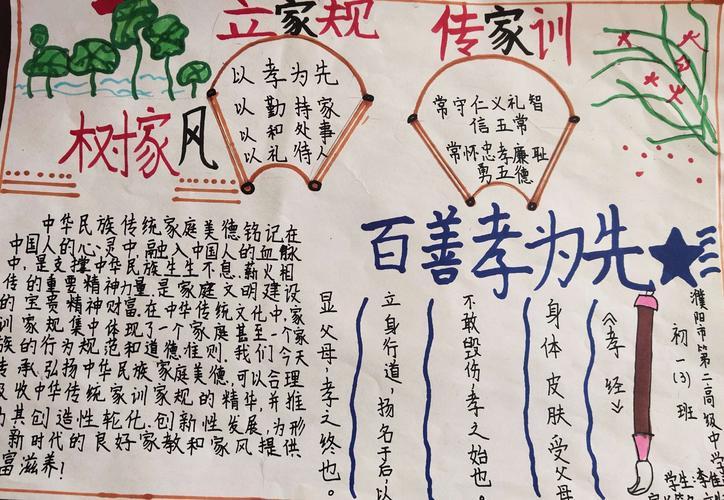 立家规
传家训
树家风
以孝为先
以勤持家
以和处事
以礼待人
常守仁义礼智
信五常
常怀忠孝廉耻
勇五德
中华民族传统家庭美德铭记在
中国人的心灵中融入中国人的血脉
中,是支撑中华民族生生不息.薪火相
传的重要精神力量.是家庭文明建设
的宝贵精神财富.在中华传统文化中,家
训家规集中体现了一个家庭甚至一个家
族的行为规范和道德准则.我们今天
传承.弘扬中华民族家庭美德,可以合理
吸收中华传统家训家规的精华,并推
为其创造性轮化.创新性发展,为形
新时代的良好家教和家风提供
富滋养!
百善孝为先
《孝经》
身体皮肤受父母
不敢毁伤,孝之始也。
立身行道,扬名于后,以
显父母,孝之终也。
濮阳市第二高级中学
初一(3)班
学生:李